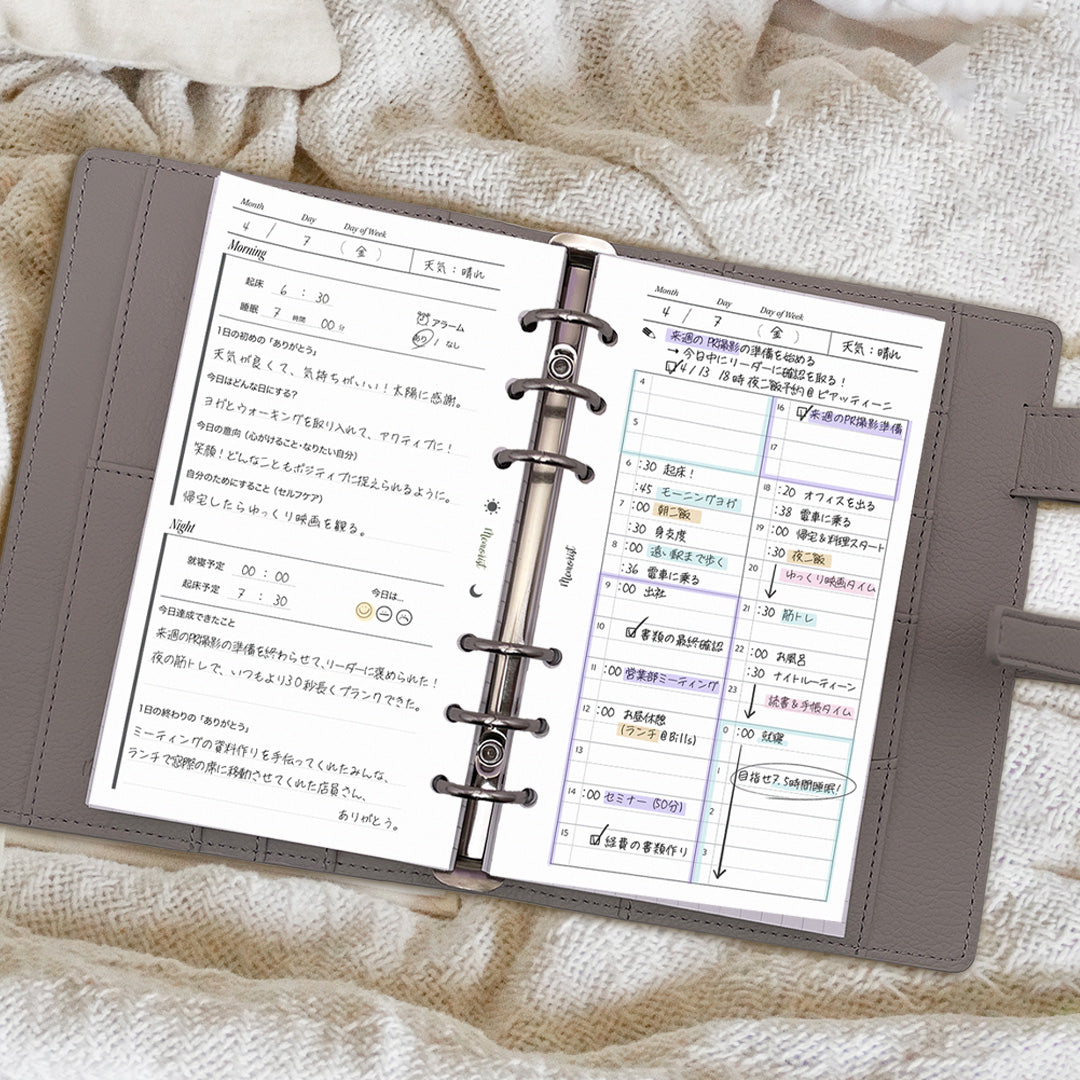 Month Day Day of Week
4 / 7 (金) 天気：晴れ
Morning
起床 6 : 30
睡眠 7 時間 00 分
アラーム
あり / なし
1日の初めの「ありがとう」
天気が良くて、気持ちがいい!! 太陽に感謝。
今日はどんな日にする?
ヨガとウォーキングを取り入れて、アクティブに!
今日の意向（心がけること・なりたい自分）
笑顔! どんなこともポジティブに捉えられるように。
自分のためにすること（セルフケア）
帰宅したらゆっくり映画を観る。
Night
就寝予定 00 : 00
起床予定 7 : 30
今日は...
今日達成できたこと
来週のPR撮影の準備を終わらせて、リーダーに褒められた!
夜の筋トレで、いつもより30秒長くプランクできた。
1日の終わりの「ありがとう」
ミーティングの資料作りを手伝ってくれたみんな、
ランチで窓際の席に移動させてくれた店員さん、
ありがとう。
Memorist
Memorist
Month Day Day of Week
4 / 7 (金) 天気：晴れ
来週の PR撮影の準備を始める
→ 今日中にリーダーに確認を取る!
4/13 18時 夜ご飯予約@ピアッティーニ
4
5
6 :30 起床!
:45 モーニングヨガ
7 :00 朝ご飯
:30 身支度
8 :00 遠い駅まで歩く
:36 電車に乗る
9 :00 出社
10 書類の最終確認
11 :00 営業部ミーティング
12 :00 お昼休憩
(ランチ@Bills)
13
14 :00 セミナー (50分)
15 経費の書類作り
16 来週のPR撮影準備
17
18 :20 オフィスを出る
:38 電車に乗る
19 :00 帰宅&料理スタート
:30 夜ご飯
20 ゆっくり映画タイム
21 :30 筋トレ
22 :00 お風呂
:30 ナイトルーティーン
23 読書&手帳タイム
0 :00 就寝
1 目指せ7.5時間睡眠!
2
3